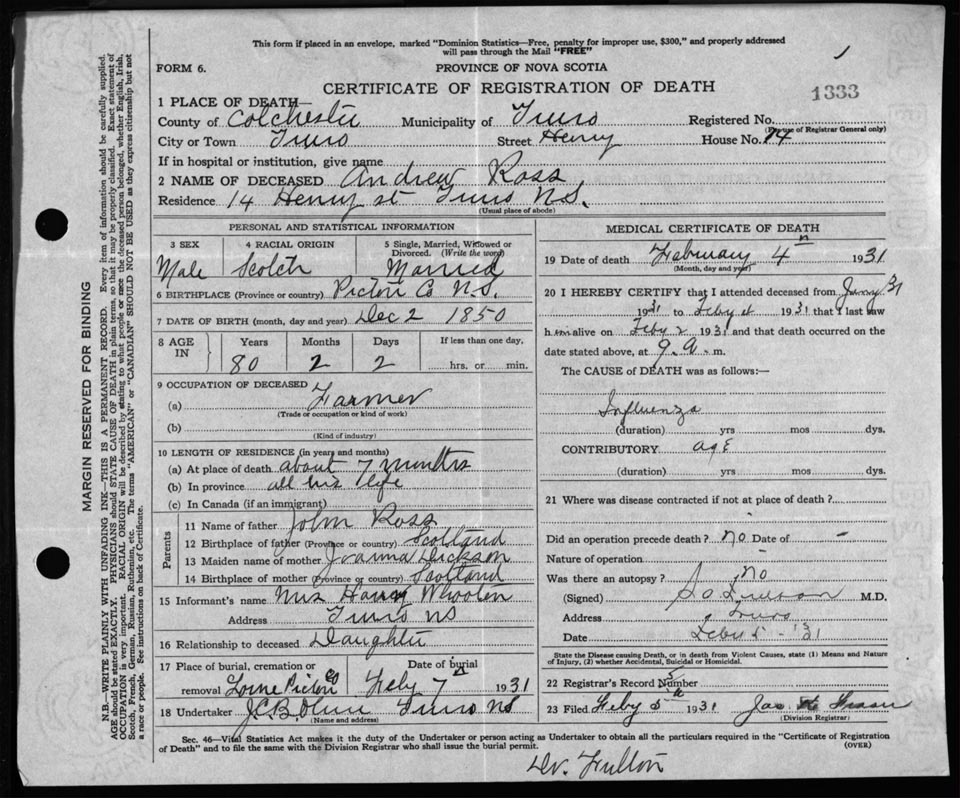 This form if placed in an envelope, marked "Dominion Statistics—Free, penalty for improper use, $300," and properly addressed
will pass through the Mail "FREE"
FORM 6.
PROVINCE OF NOVA SCOTIA
CERTIFICATE OF REGISTRATION OF DEATH
1333
1 PLACE OF DEATH—
County of Colchester Municipality of Truro Registered No.
(For use of Registrar General only)
City or Town Truro Street Henry House No. 14
If in hospital or institution, give name
2 NAME OF DECEASED Andrew Ross
Residence 14 Henry st Truro N.S.
(Usual place of abode)
PERSONAL AND STATISTICAL INFORMATION
3 SEX 4 RACIAL ORIGIN 5 Single, Married, Widowed or
Divorced. (Write the word)
Male Scotch Married
6 BIRTHPLACE (Province or country) Pictou Co N.S.
7 DATE OF BIRTH (month, day and year) Dec 2 1850
8 AGE IN Years Months Days If less than one day,
80 2 2 hrs. or min.
9 OCCUPATION OF DECEASED
(a) Farmer
(Trade or occupation or kind of work)
(b)
(Kind of industry)
10 LENGTH OF RESIDENCE (in years and months)
(a) At place of death about 7 months
(b) In province all his life
(c) In Canada (if an immigrant)
Parents
11 Name of father John Ross
12 Birthplace of father (Province or country) Scotland
13 Maiden name of mother Dickson
14 Birthplace of mother (Province or country) Scotland
15 Informant's name Mrs Harry Whooten
Address Truro NS
16 Relationship to deceased Daughter
17 Place of burial, cremation or Date of burial
removal Lorne Pictou Co Feby 7 1931
18 Undertaker Truro NS
(Name and address)
MEDICAL CERTIFICATE OF DEATH
19 Date of death February 4 1931
(Month, day and year)
20 I HEREBY CERTIFY that I attended deceased from
1931 to Feby 1931 that I last saw
him alive on Feby 2 1931 and that death occurred on the
date stated above, at 9. a. m.
The CAUSE of DEATH was as follows:—
Influenza
(duration) yrs mos dys.
CONTRIBUTORY age
(duration) yrs mos dys.
21 Where was disease contracted if not at place of death?
Did an operation precede death? no Date of -
Nature of operation
Was there an autopsy? no
(Signed) M.D.
Address Truro
Date Feby 5 - '31
State the Disease causing Death, or in death from Violent Causes, state (1) Means and Nature
of Injury, (2) whether Accidental, Suicidal or Homicidal.
22 Registrar's Record Number
23 Filed Feby 5 1931 Jas
(Division Registrar)
Sec. 46—Vital Statistics Act makes it the duty of the Undertaker or person acting as Undertaker to obtain all the particulars required in the "Certificate of Registration
of Death" and to file the same with the Division Registrar who shall issue the burial permit. (OVER)
Dr. Fulton
MARGIN RESERVED FOR BINDING
N.B.—WRITE PLAINLY WITH UNFADING INK—THIS IS A PERMANENT RECORD. Every item of information should be carefully supplied.
AGE should be stated EXACTLY. PHYSICIANS should STATE CAUSE OF DEATH in plain terms, so that it may be properly classified. Exact statement of
OCCUPATION is very important. RACIAL ORIGIN will be described by stating to what people or race the deceased person belonged, whether English, Irish,
Scotch, French, German, Russian, Ruthenian, etc. The terms "AMERICAN" or "CANADIAN" SHOULD NOT BE USED as they express citizenship but not
a race or people. See instructions on back of Certificate.